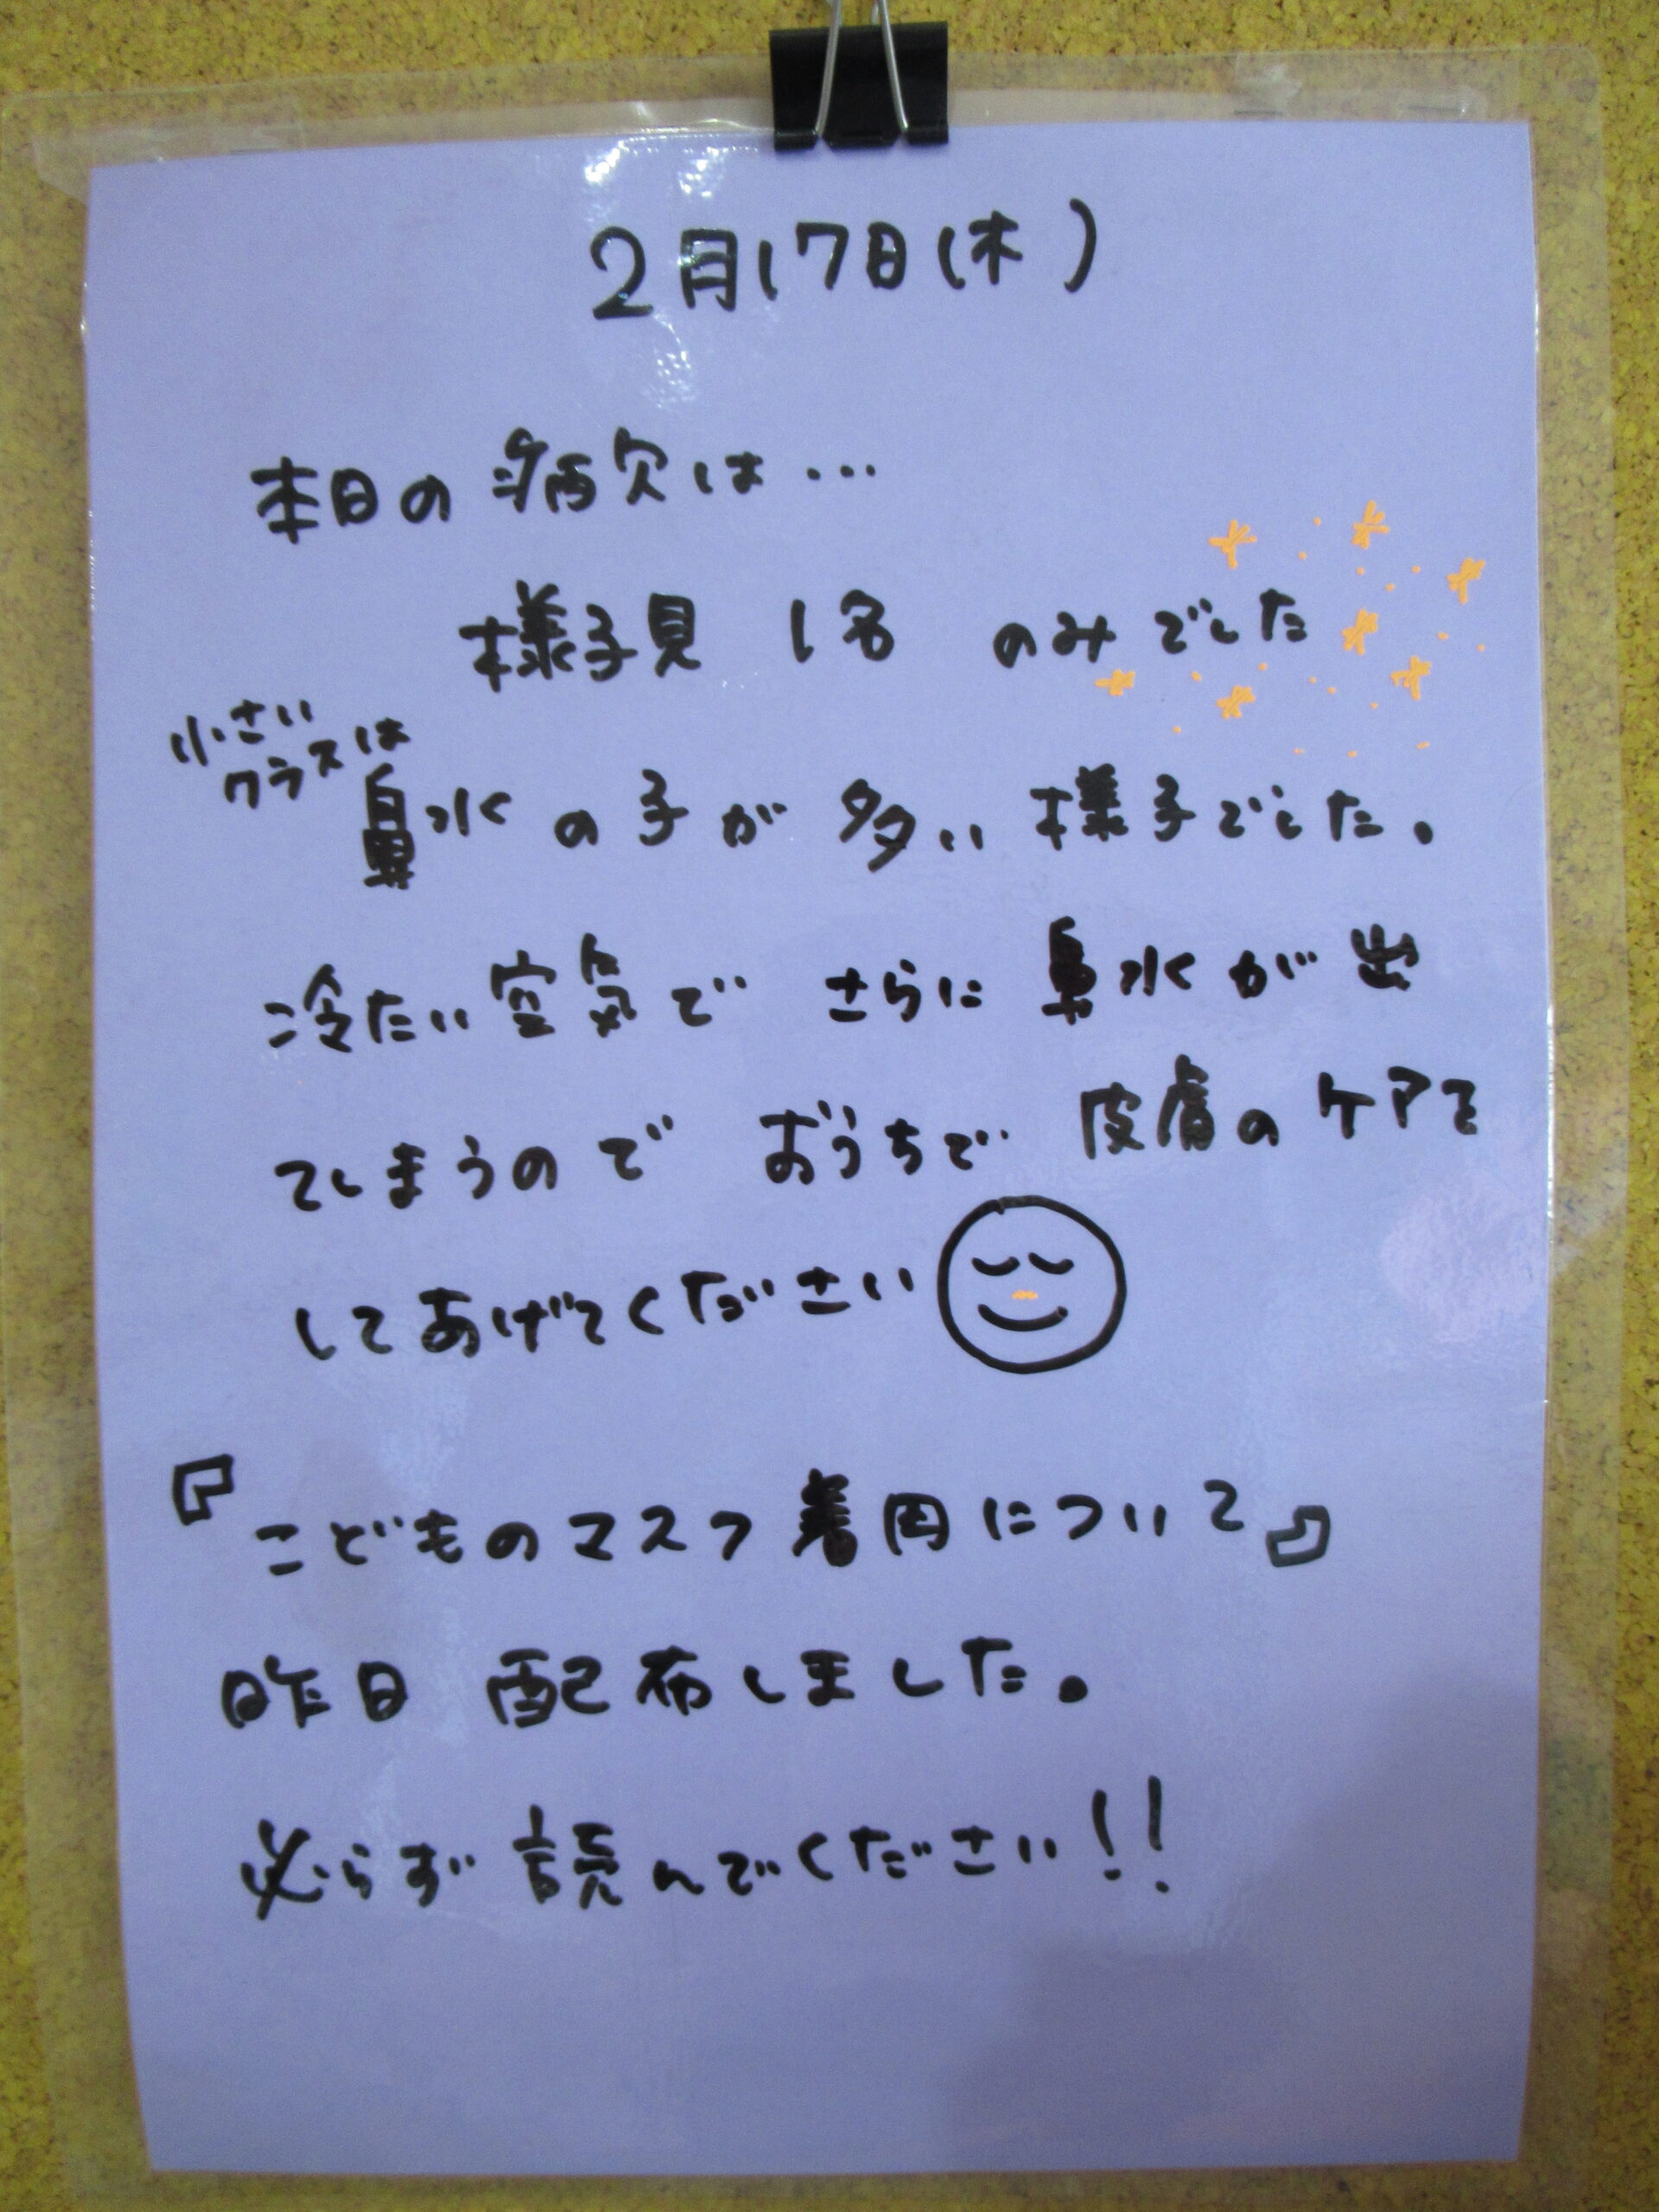 2月17日(木)
本日の病欠は…
様子見 1名 のみでした
小さい
クラスは
鼻水の子が多い様子でした。
冷たい空気で さらに鼻水が出
てしまうので おうちで 皮膚のケアを
してあげてください
『こどものマスク着用について』
昨日 配布しました。
必らず 読んでください!!